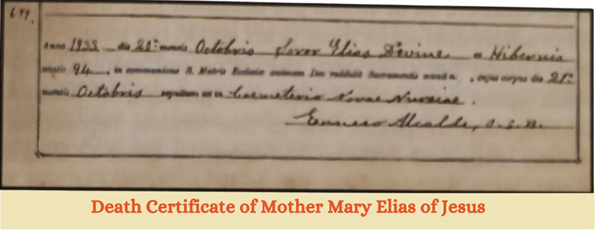 Anno 1935 die 20a mensis Octobris Soror Elias Devine ex Hibernia
aetatis 94, in communione S. Matris Ecclesiae animam Deo reddidit Sacramentis munita, cujus corpus die 21a
mensis Octobris sepultum est in Coemeterio Novae Nursiae.
Alcalde, O.S.B.
Death Certificate of Mother Mary Elias of Jesus